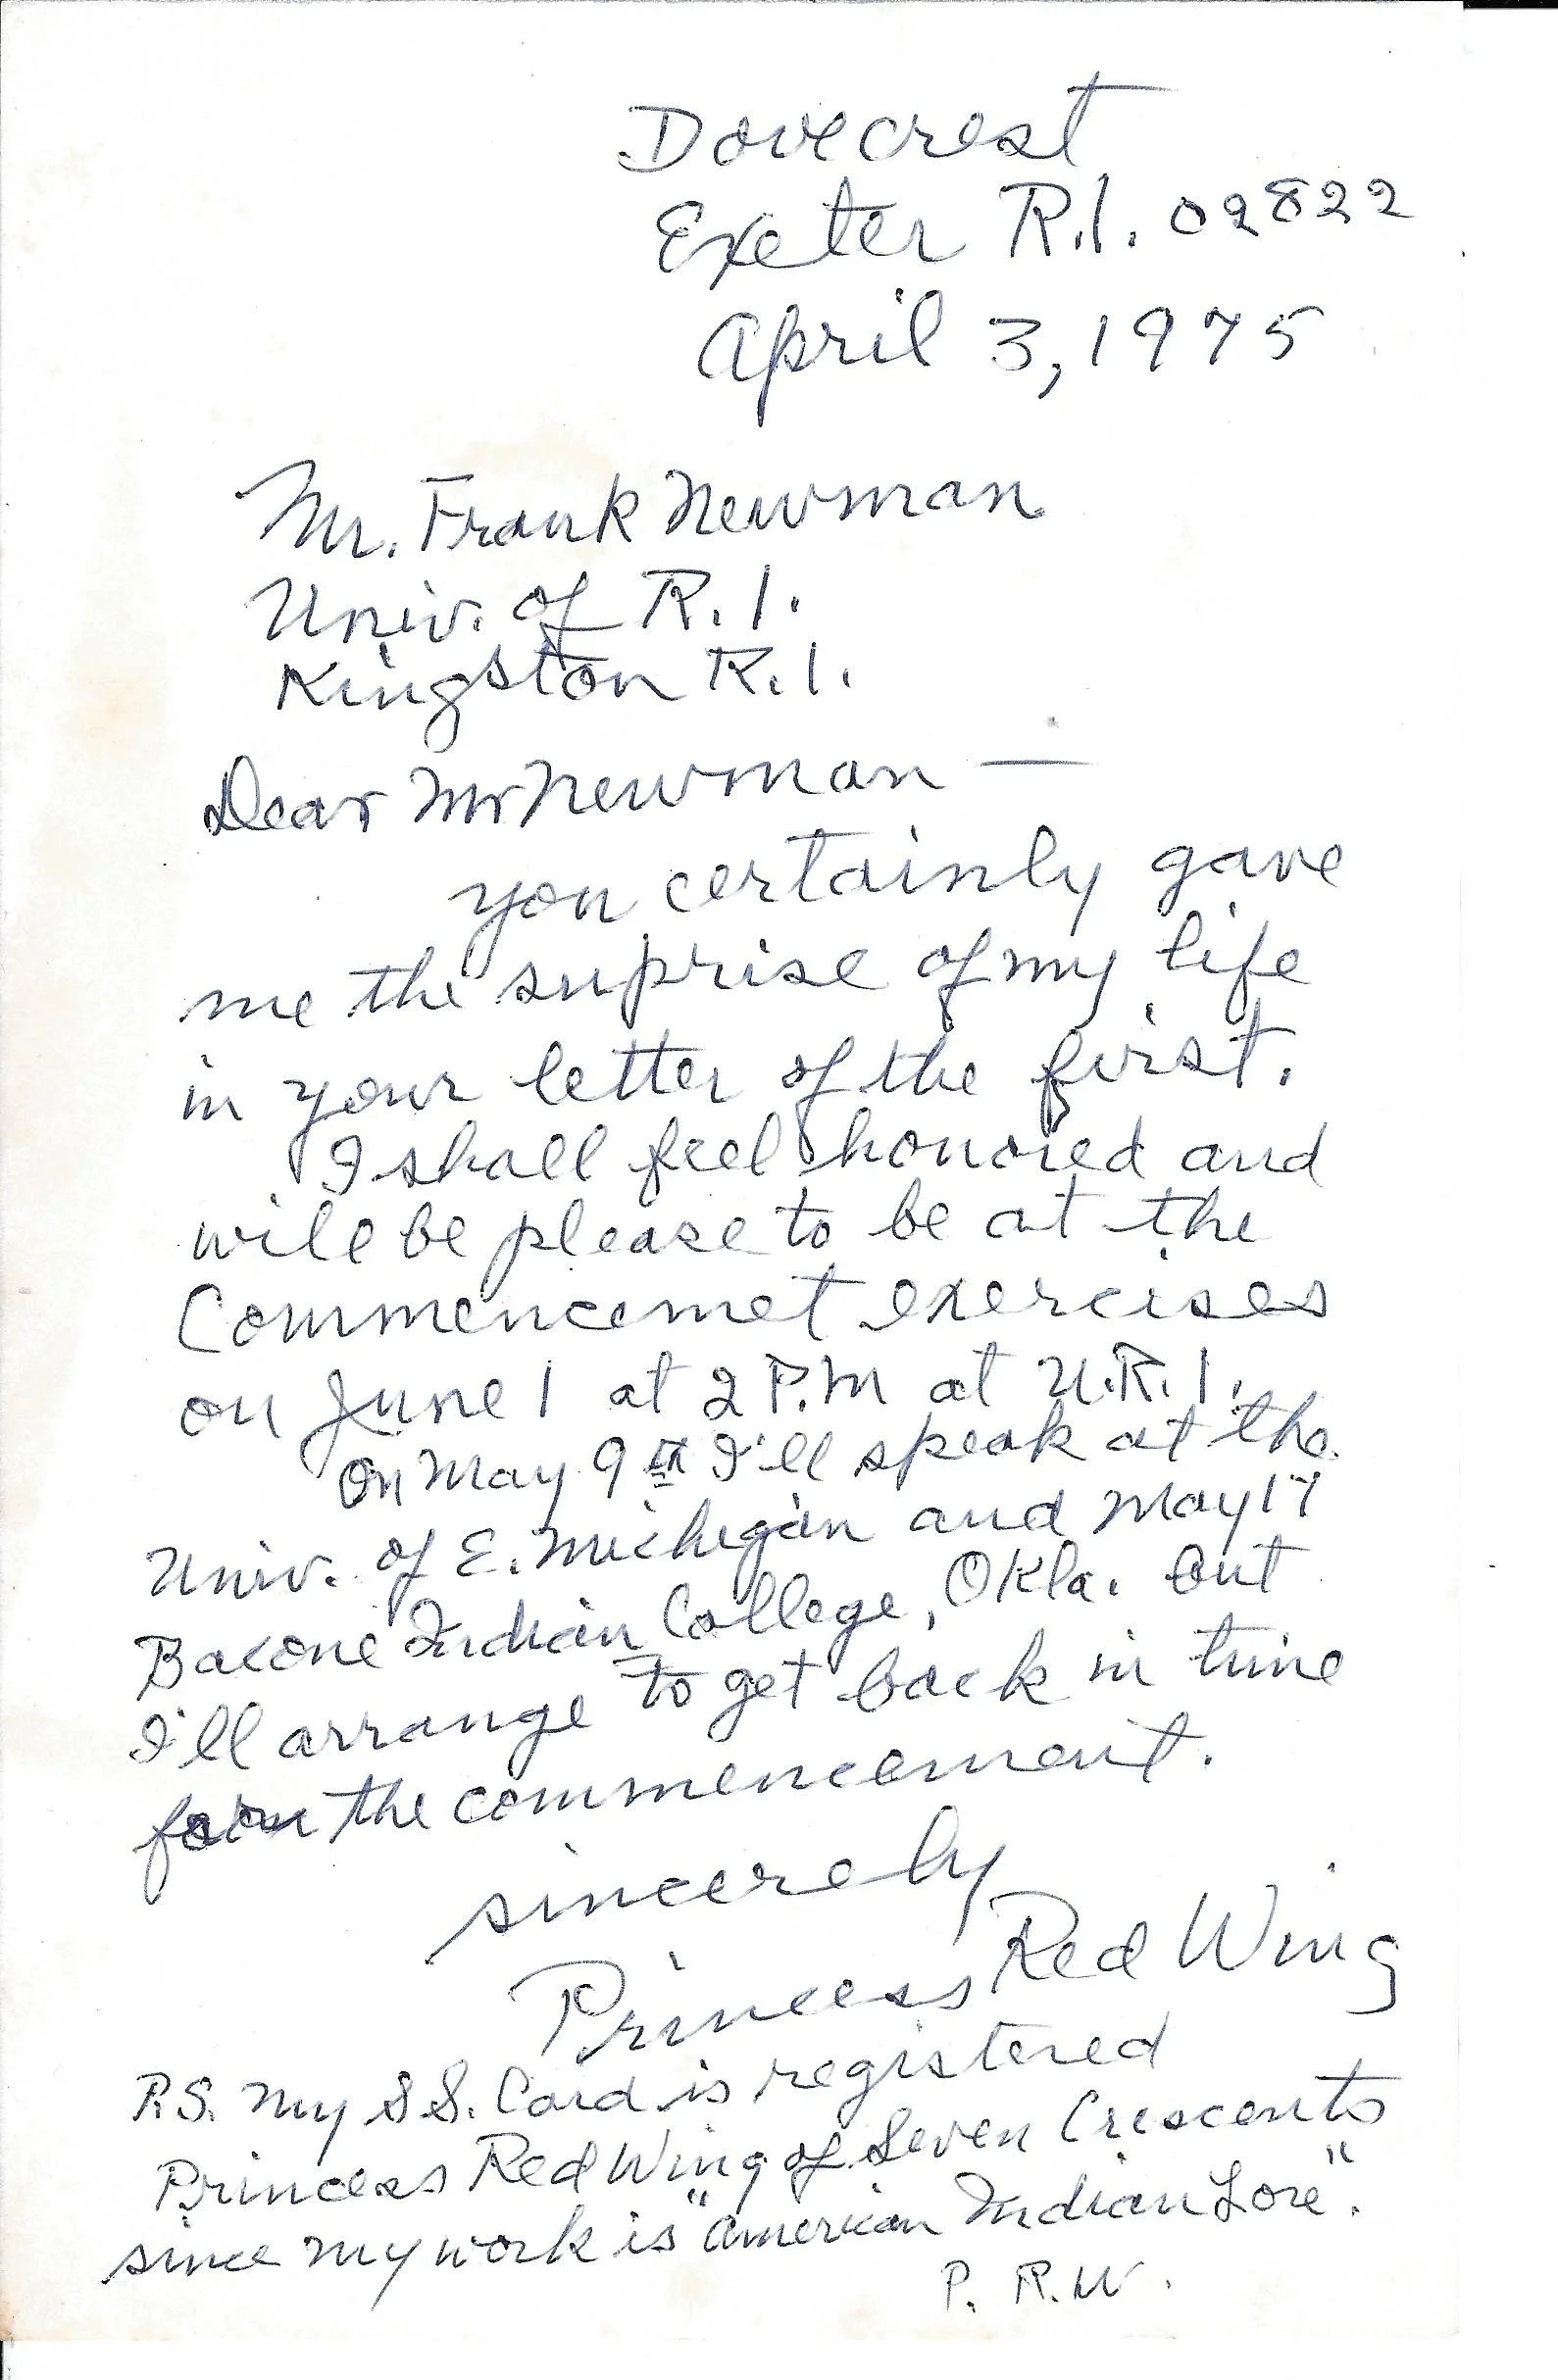 Dovecrest
Exeter R.I. 02822
April 3, 1975
Mr. Frank Newman
Univ. of R.I.
Kingston R.I.
Dear Mr Newman —
you certainly gave
me the suprise of my life
in your letter of the first.
I shall feel honored and
will be please to be at the
Commencemet exercises
on June 1 at 2 P.M at U.R.I.
On May 9th I'll speak at the
Univ. of E. Michigan and May 17
Bacone Indian College, Okla. but
I'll arrange to get back in time
the commencement.
sincerely
Princess Red Wing
P.S. My S S. Card is registered
Princess Red Wing of Seven Crescents
since my work is "American Indian Lore".
P. R.W.